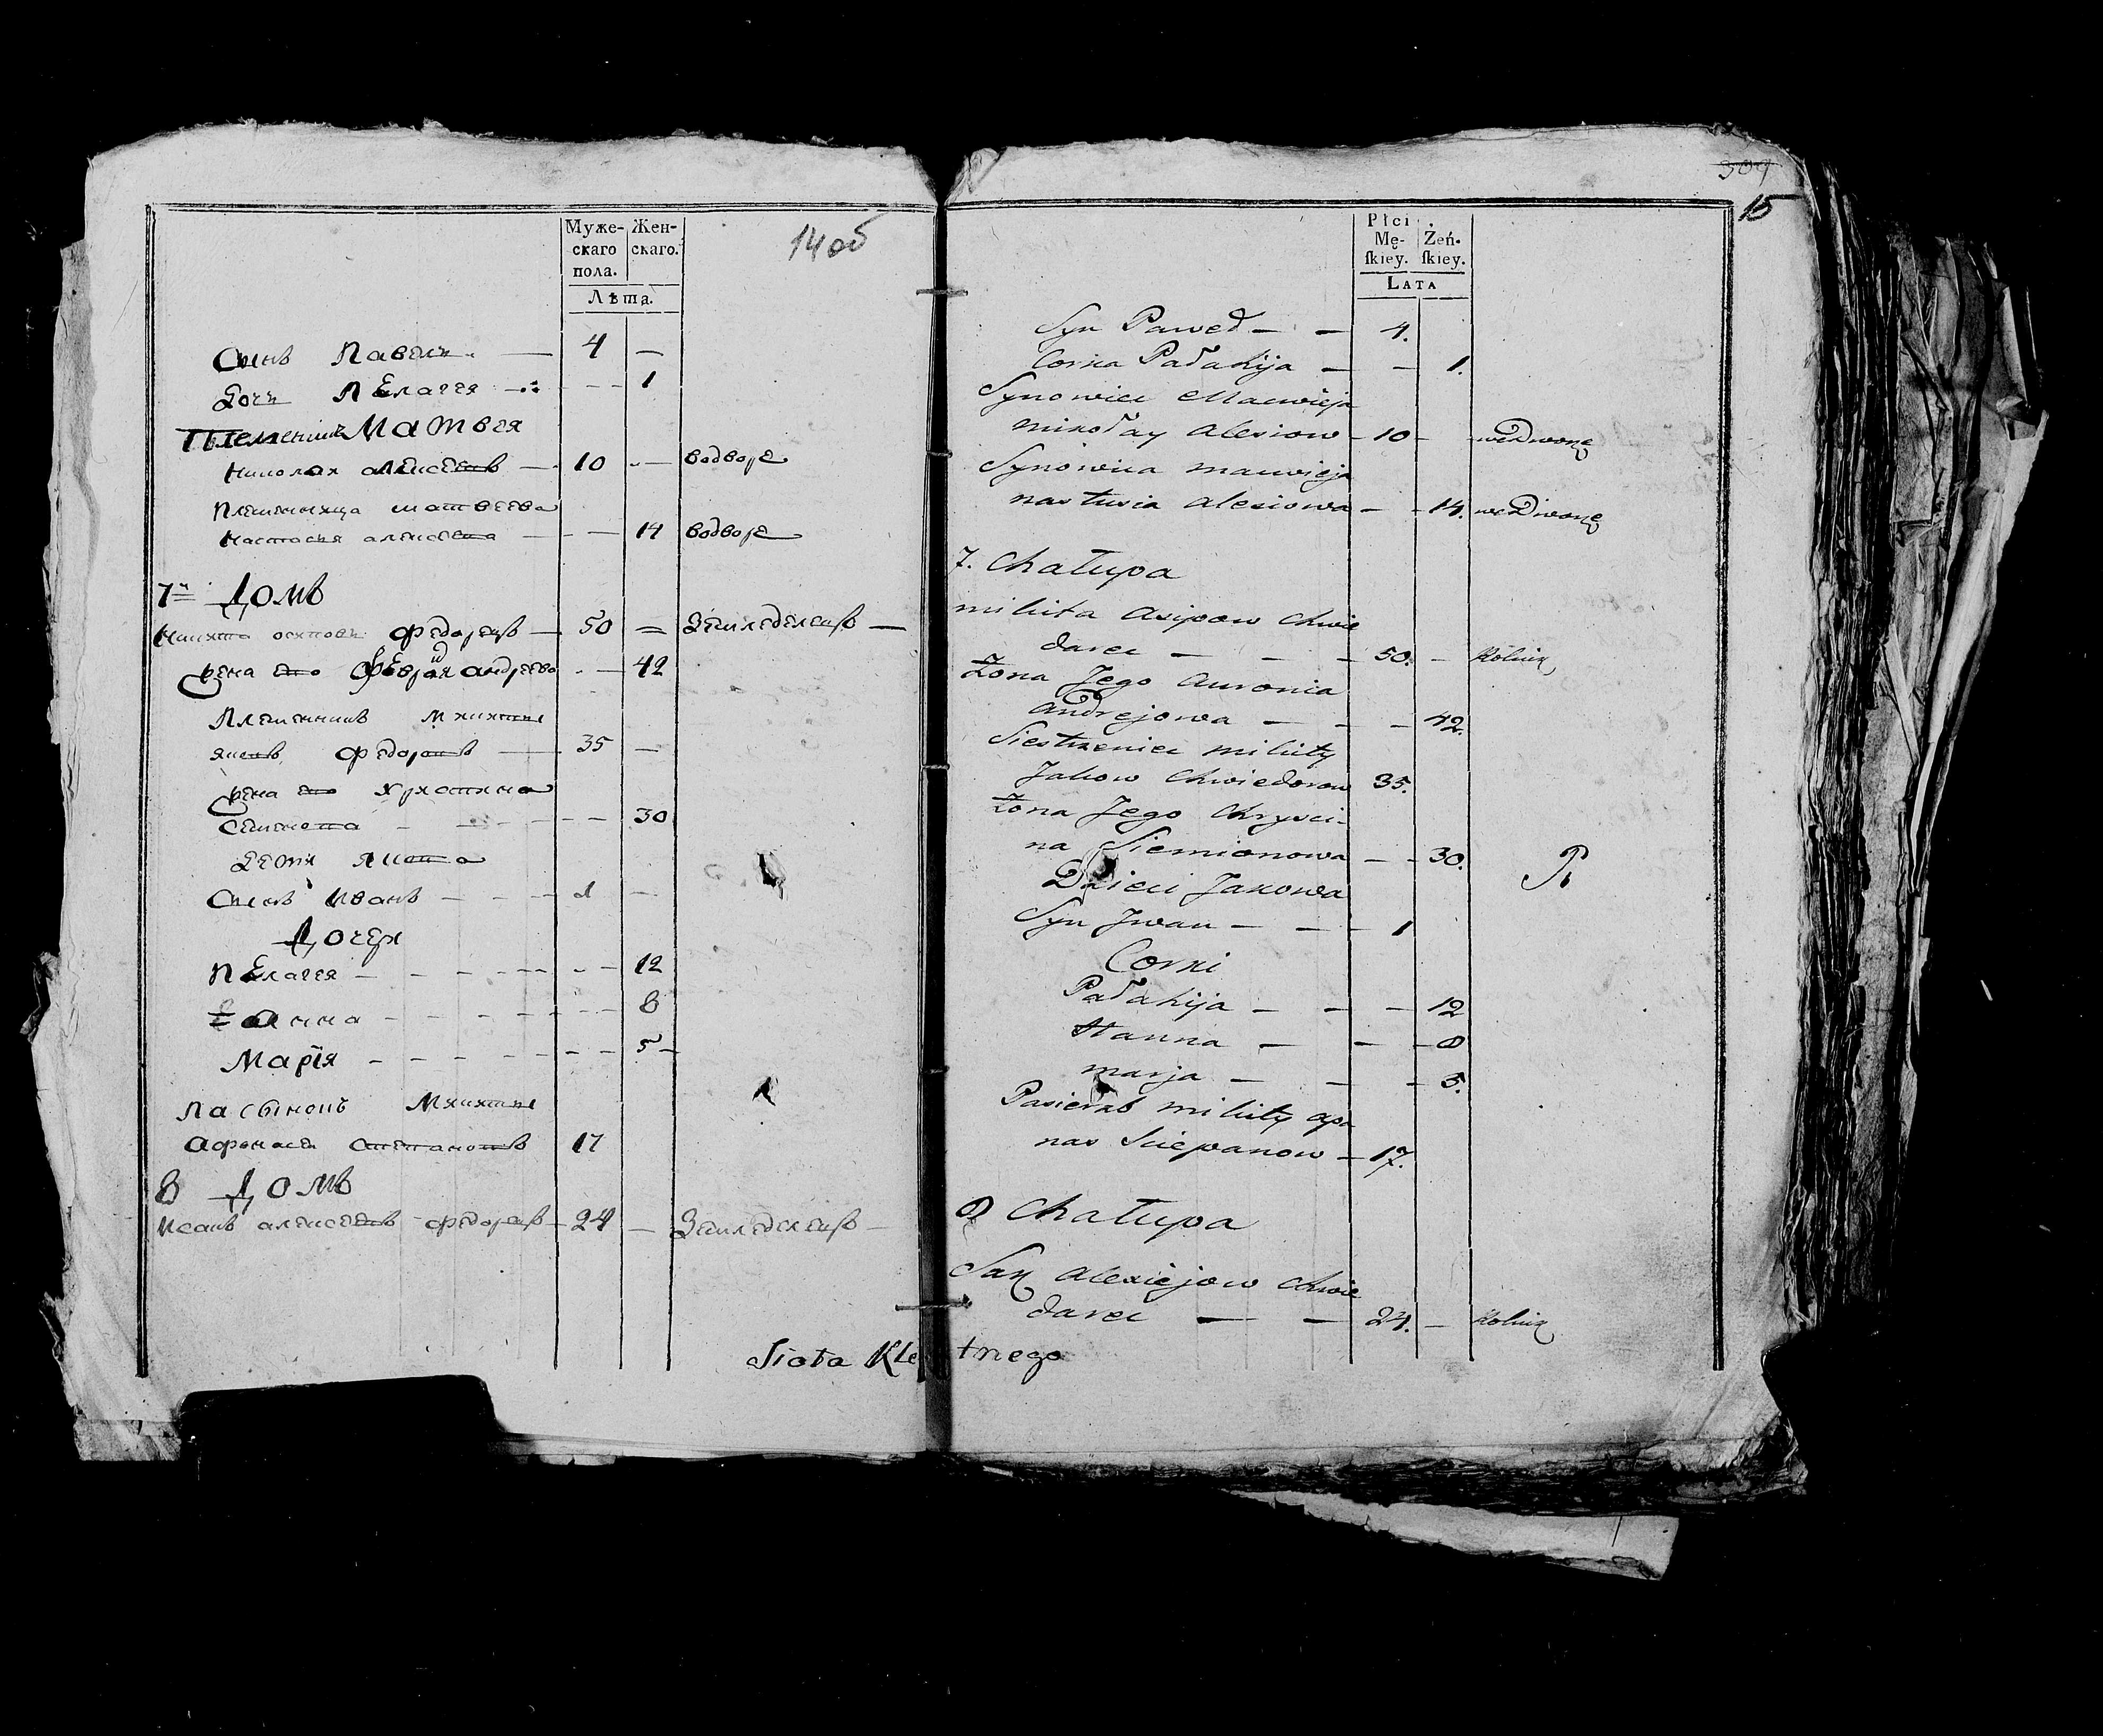 14об
Муже-
скаго
пола.
Жен-
скаго.
Лѣта.
Сынъ Павелъ — 4 —
Дочь Пелагея — 1
Племенникъ Матвея
Николай Алексеевъ — 10 — водворе
Племеница матвеева
Настасья алексеева — 14 водворе
7й Домъ
Микита осиповъ Федорецъ — 50 = Земледелецъ —
Жена его андреева — 42
Племенникъ Микиты
Яковъ Федоровъ — 35 —
Жена его Христина
Семенова — 30
Дети Якова
Сынъ Иванъ — 1 —
Дочери
Пелагея — 12
Анна — 8
Мария — 5 —
Пасынокъ Микиты
Афонасей Степановъ 17
8 Домъ
Исакъ алексеевъ Федорецъ — 24 — Земледелецъ —
309
15
Płci
Mę-
ſkiey.
Żeń-
ſkiey.
LATA
Syn Paweł — — 4.
Corka Pałahija — — 1.
Synowiec Maciwieja
mikołay Alexiow — 10 — we Dworze
Synowica maciwieja
nastusia alexiowa — - 14. we Dworze
7. Chałupa
mikita Asipow Chwie
darec — — — 50. — Rolnik
Żona Jego Awronia
Andrejowa — — — 42.
Siestrzeniec mikity
Jakow Chwiedorow 35.
Żona Jego Chryści-
na Siemionowa — - 30.
Dzieci Jakowa
Syn Jwan — — - 1
Corki
Pałahija — — — 12
Hanna — — - 8
marja — — - 5.
Pasierzb mikity Apa
nas Sciepanow — 17.
8 Chałupa
Sak Alexiejow Chwie
darec — — 24. — Rolnik
Sioła Kletnego